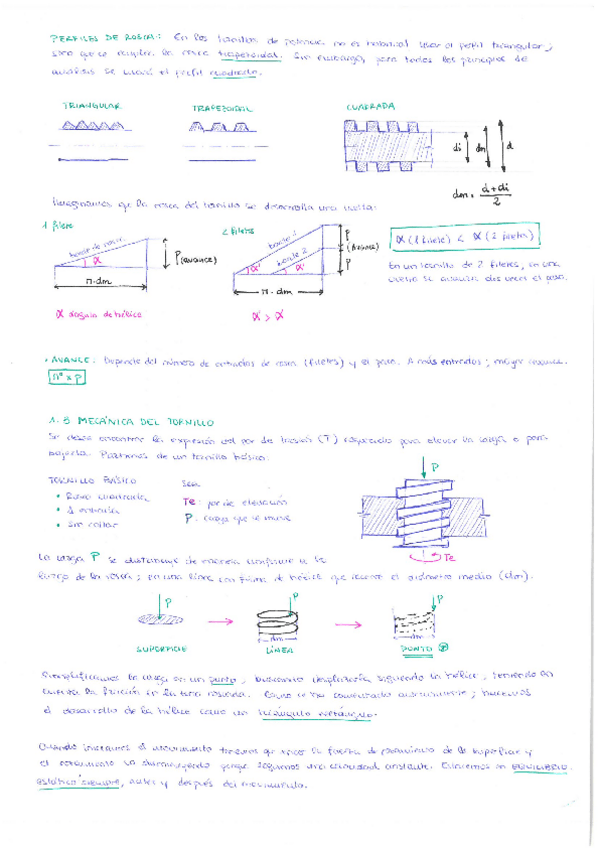 PERFILES DE ROSCA: En los tornillos de potencia no es habitual usar el perfil triangular;
sino que se emplea la rosca trapezoidal. Sin embargo, para todos los principios de
análisis se usará el perfil cuadrado.
TRIANGULAR TRAPEZOIDAL CUADRADA
di dm d
dm = d+di / 2
Imaginamos que la rosca del tornillo se desarrolla una vuelta:
1 filete 2 filetes
borde de rosca
α
P (avance)
π·dm
borde 1
borde 2
α' α'
P (avance) P
π·dm
α (1 filete) < α (2 filetes)
En un tornillo de 2 filetes, en una
vuelta se avanza dos veces el paso.
α ángulo de hélice
α' > α
· AVANCE: Depende del número de entradas de rosca (filetes) y el paso. A más entradas; mayor avance.
nº x p
1.3 MECÁNICA DEL TORNILLO
Se desea encontrar la expresión del par de torsión (T) requerido para elevar la carga o para
bajarla. Partimos de un tornillo básico:
TORNILLO BÁSICO
• Rosca cuadrada
• 1 entrada
• Sin collar
Sea:
Te: par de elevación
P: carga que se mueve
P
Te
La carga P se distribuye de manera uniforme a lo
largo de la rosca; en una línea con forma de hélice que recorre el diámetro medio (dm).
P P P
dm dm
SUPERFICIE LÍNEA PUNTO
Simplificamos la carga en un punto, desplazándola siguiendo la hélice, teniendo en
cuenta la fricción en la zona roscada. Como se ha comentado anteriormente; hacemos
el desarrollo de la hélice como un triángulo rectángulo.
Cuando iniciamos el movimiento tenemos que vencer la fuerza de rozamiento de la superficie y
el rozamiento va disminuyendo porque seguimos una velocidad constante. Estaremos en EQUILIBRIO
estático siempre, antes y después del movimiento.